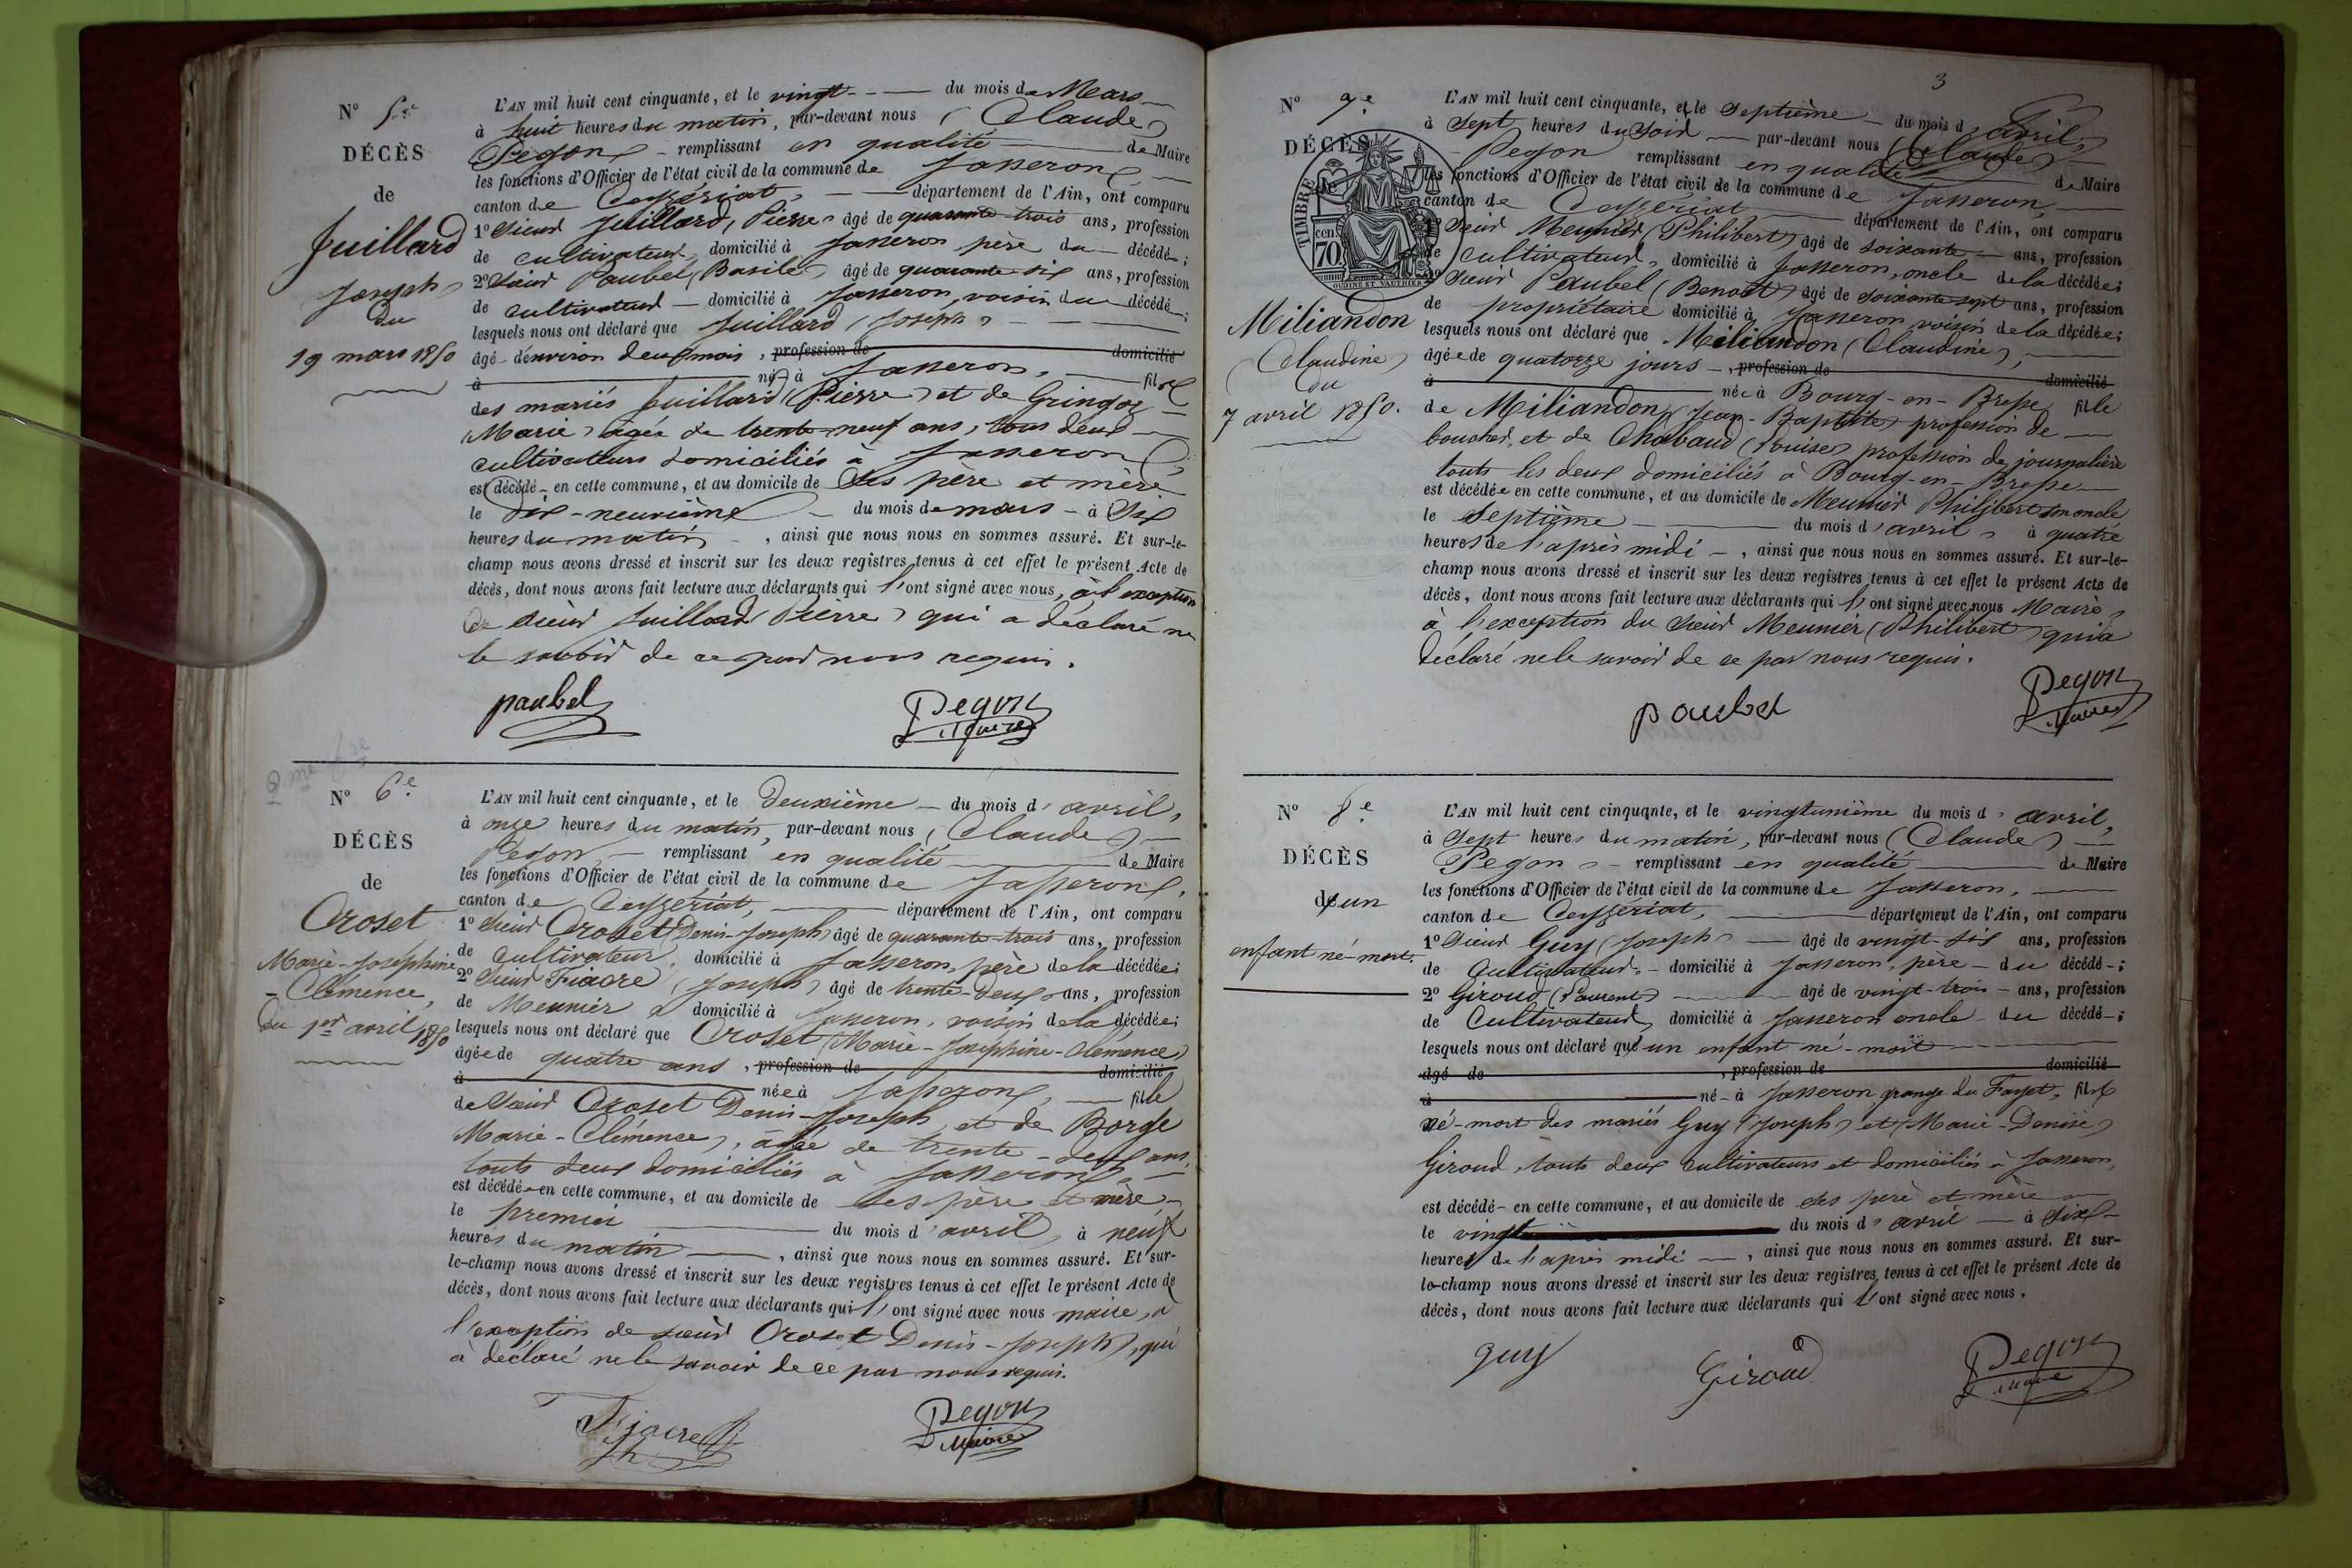 N° 5.e
DÉCÈS
de
Juillard
Joseph
du
19 mars 1850
L'AN mil huit cent cinquante, et le vingt - - — du mois de Mars
à huit heures du matin, par-devant nous (Claude)
Pegon - remplissant en qualité de Maire
les fonctions d'Officier de l'état civil de la commune de Jasseron
canton de Ceyzériat, département de l'Ain, ont comparu
1° Sieur Juillard, (Pierre) âgé de quarante-trois ans, profession
de cultivateur, domicilié à Jasseron père du décédé ;
2° Sieur Paubel (Basile) âgé de quarante six ans, profession
de cultivateur — domicilié à Jasseron, voisin du décédé ;
lesquels nous ont déclaré que Juillard (Joseph)
âgé d'environ deux mois, profession de domicilié
à né à Jasseron, fils
des mariés Juillard (Pierre) et de Gringoz
(Marie) âgée de trente-neuf ans, tous deux
cultivateurs domiciliés à Jasseron
est décédé en cette commune, et au domicile de ses père et mère
le dix-neuvième du mois de mars - à six
heures du matin, ainsi que nous nous en sommes assuré. Et sur-le-
champ nous avons dressé et inscrit sur les deux registres tenus à cet effet le présent Acte de
décès, dont nous avons fait lecture aux déclarants qui l'ont signé avec nous, à l'exception
de sieur Juillard (Pierre) qui a déclaré ne
le savoir de ce par nous requis.
paubel Pegon
Maire
N° 6.e
DÉCÈS
de
Croset
Marie-Joséphine
-Clémence,
du 1er avril 1850
L'AN mil huit cent cinquante, et le deuxième — du mois d'avril,
à onze heures du matin, par-devant nous (Claude)
Pegon — remplissant en qualité de Maire
les fonctions d'Officier de l'état civil de la commune de Jasseron,
canton de Ceyzériat, département de l'Ain, ont comparu
1° Sieur Croset (Denis-Joseph) âgé de quarante-trois ans, profession
de cultivateur, domicilié à Jasseron, père de la décédée;
2° Sieur Fiacre (Joseph) âgé de trente-deux ans, profession
de Meunier domicilié à Jasseron, voisin de la décédée;
lesquels nous ont déclaré que Croset (Marie-Joséphine-Clémence)
âgée de quatre ans, profession de domicilié
à née à Jasseron, fille
de Sieur Croset Denis-Joseph et de Borge
Marie-Clémence, âgée de trente-deux ans,
touts deux domiciliés à Jasseron,
est décédée en cette commune, et au domicile de ses père et mère
le premier du mois d'avril, à neuf
heures du matin, ainsi que nous nous en sommes assuré. Et sur-
le-champ nous avons dressé et inscrit sur les deux registres tenus à cet effet le présent Acte de
décès, dont nous avons fait lecture aux déclarants qui l'ont signé avec nous maire, à
l'exception de sieur Croset Denis-Joseph), qui
a déclaré ne le savoir de ce par nous requis.
Fiacre Pegon
Jh Maire
3
N° 7.e
DÉCÈS
de
TIMBRE
cen
70.
OUDINÉ ET VAUTHIER
Miliandon
(Claudine)
du
7 avril 1850.
L'AN mil huit cent cinquante, et le septième — du mois d'avril,
à sept heures du soir — par-devant nous (Claude)
Pegon remplissant en qualité de Maire
les fonctions d'Officier de l'état civil de la commune de Jasseron,
canton de Ceyzériat département de l'Ain, ont comparu
1° Sieur Meunier (Philibert) âgé de soixante — ans, profession
de cultivateur, domicilié à Jasseron, oncle de la décédée;
2° Sieur Paubel (Benoit) âgé de soixante-sept ans, profession
de propriétaire domicilié à Jasseron voisin de la décédée;
lesquels nous ont déclaré que Miliandon (Claudine),
âgée de quatorze jours —, profession de domicilié
à née à Bourg-en-Bresse fille
de Miliandon (Jean-Baptiste) profession de
boucher, et de Chabaud (Louise) profession de journalière
touts les deux domiciliés à Bourg-en-Bresse
est décédée en cette commune, et au domicile de Meunier Philibert son oncle
le septième du mois d'avril, à quatre
heures de l'après midi —, ainsi que nous nous en sommes assuré. Et sur-le-
champ nous avons dressé et inscrit sur les deux registres tenus à cet effet le présent Acte de
décès, dont nous avons fait lecture aux déclarants qui l'ont signé avec nous Maire,
à l'exception du sieur Meunier (Philibert) qui a
déclaré ne le savoir de ce par nous requis.
paubel Pegon
Maire
N° 8.e
DÉCÈS
d'un
enfant né-mort.
L'AN mil huit cent cinquante, et le vingtunième du mois d'avril,
à sept heures du matin, par-devant nous (Claude)
Pegon - remplissant en qualité de Maire
les fonctions d'Officier de l'état civil de la commune de Jasseron,
canton de Ceyzériat, département de l'Ain, ont comparu
1° Sieur Guy (Joseph) — âgé de vingt-six ans, profession
de Cultivateur, - domicilié à Jasseron, père - du décédé-;
2° Giroud (Laurent) âgé de vingt-trois — ans, profession
de Cultivateur, domicilié à Jasseron oncle du décédé-;
lesquels nous ont déclaré qu'un enfant né-mort
âgé de, profession de domicilié
à né - à Jasseron grange du Fayet, fils
né-mort des mariés Guy (Joseph) et (Marie-Denise)
Giroud, touts deux cultivateurs et domiciliés à Jasseron,
est décédé - en cette commune, et au domicile de ses père et mère
le vingt du mois d'avril — à six
heures de l'après midi —, ainsi que nous nous en sommes assuré. Et sur-
le-champ nous avons dressé et inscrit sur les deux registres tenus à cet effet le présent Acte de
décès, dont nous avons fait lecture aux déclarants qui l'ont signé avec nous.
guy Giroud Pegon
maire